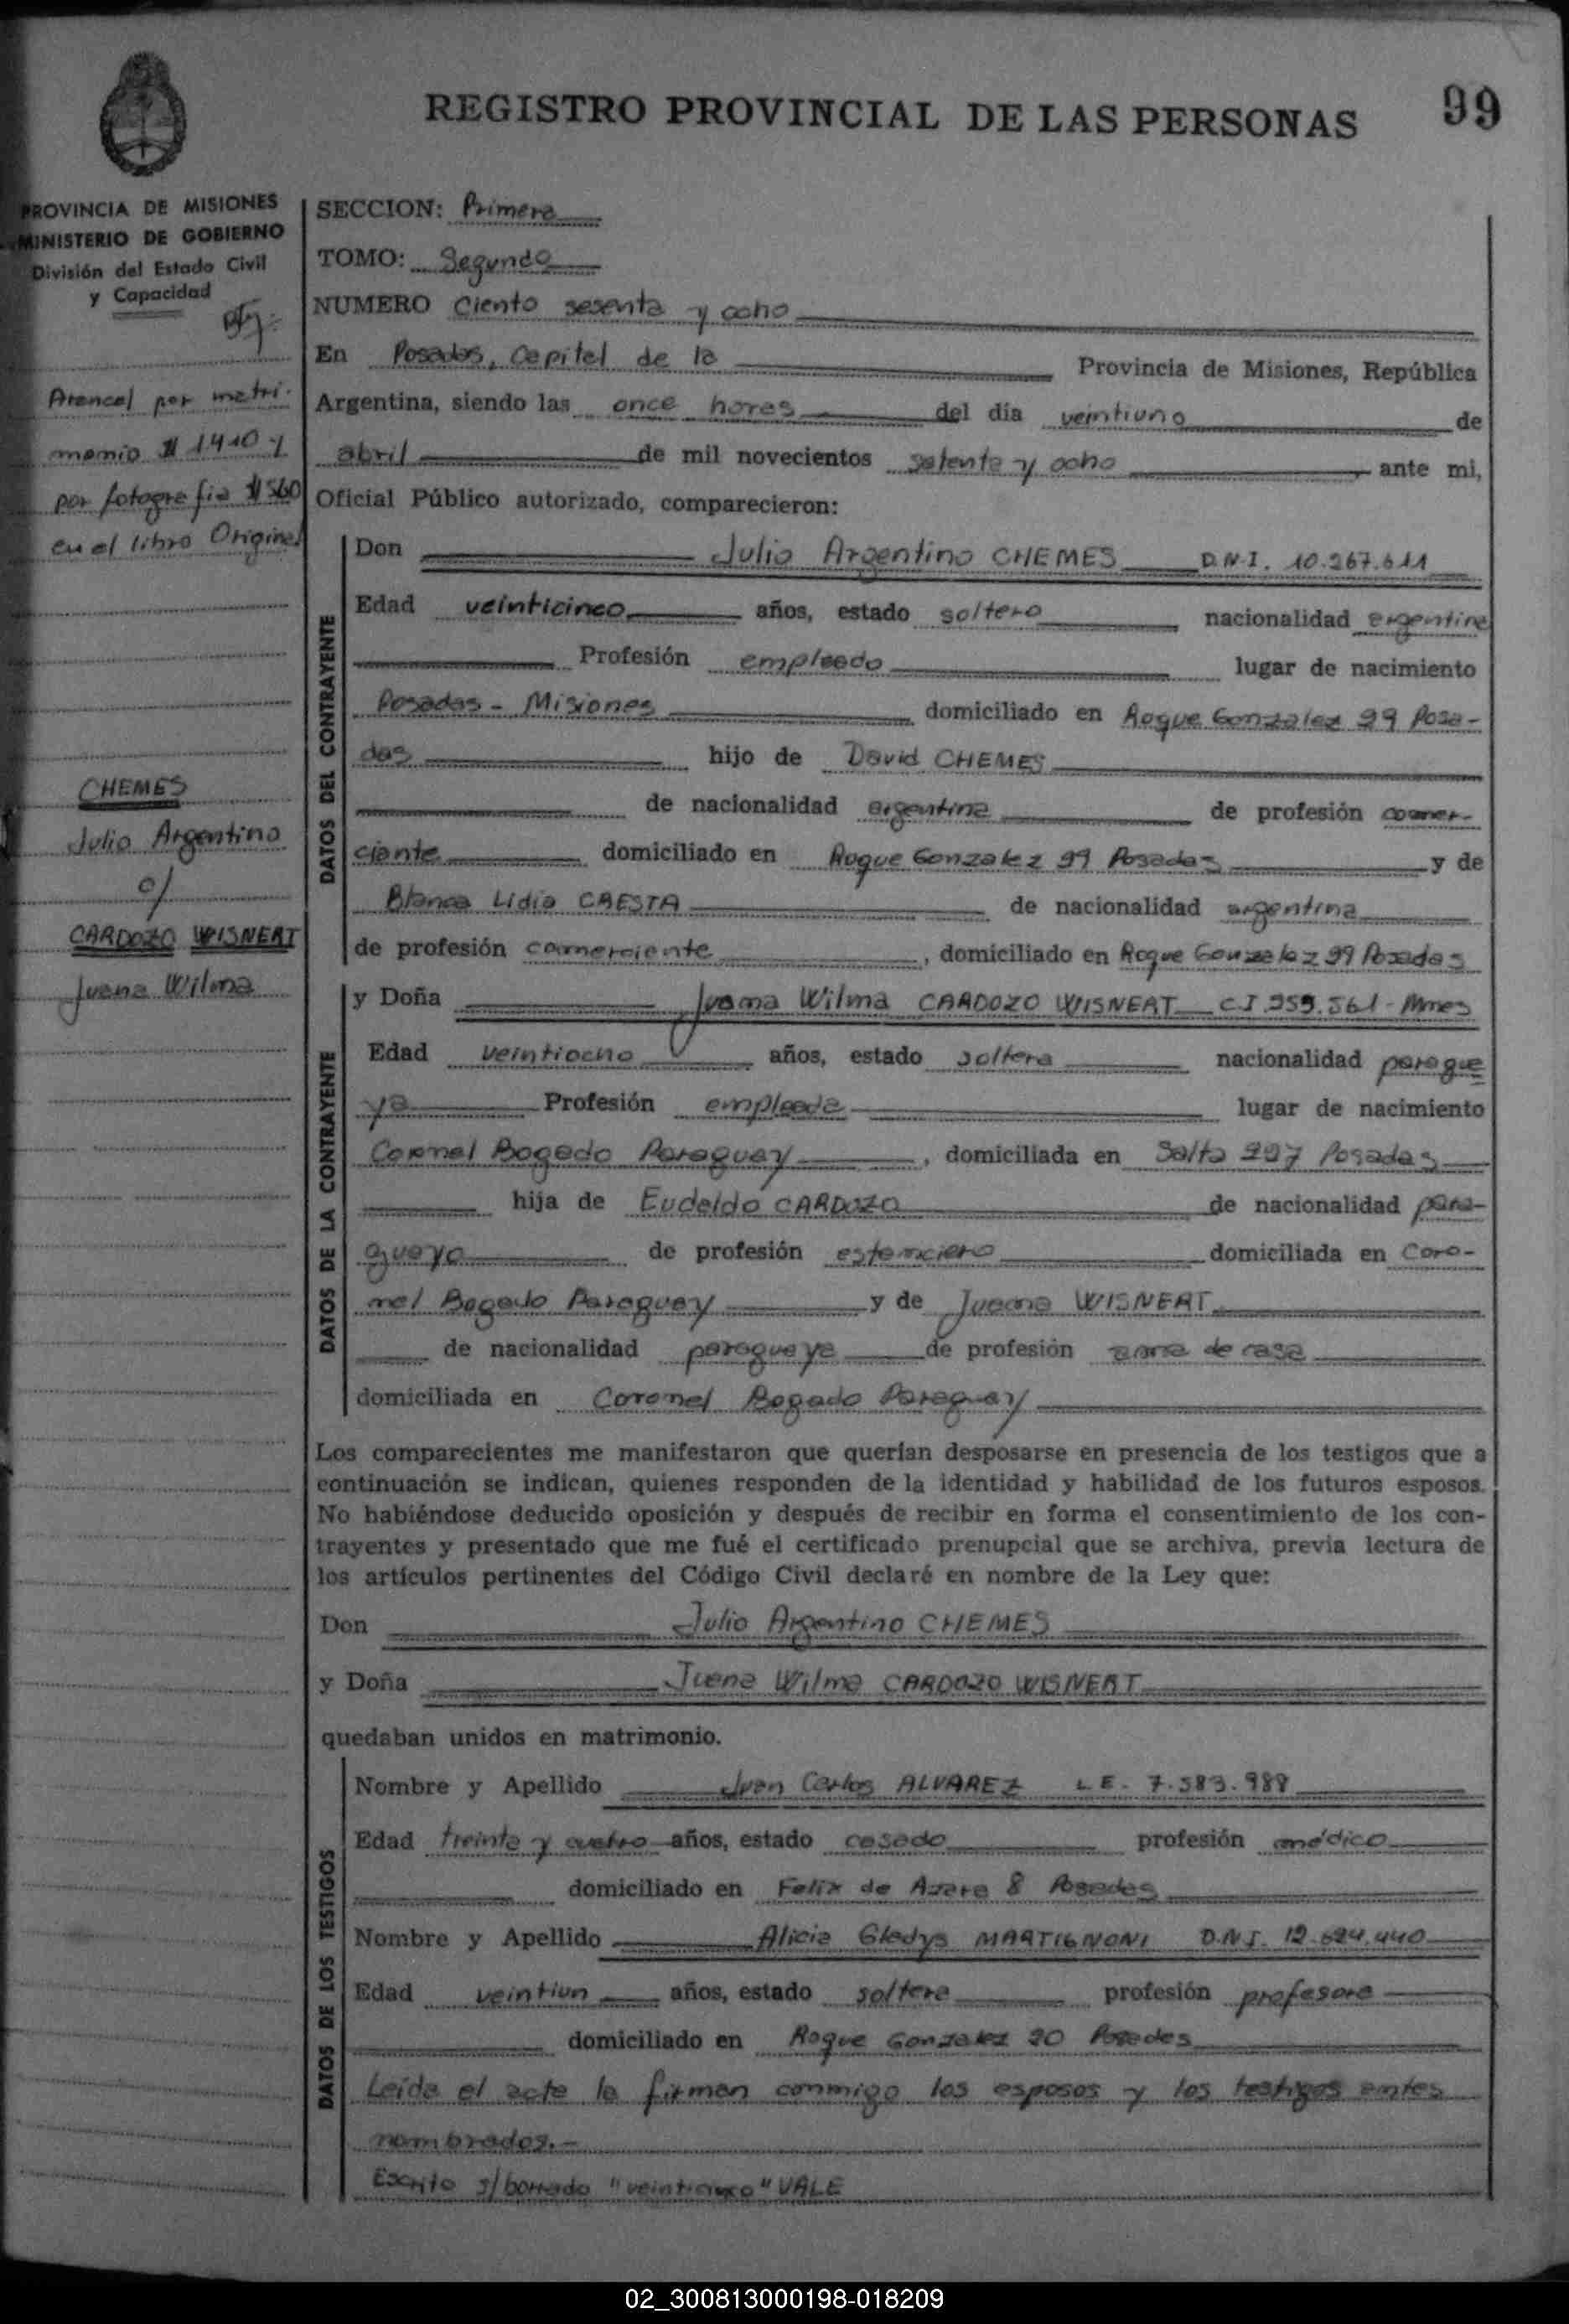 REGISTRO PROVINCIAL DE LAS PERSONAS
99
PROVINCIA DE MISIONES
MINISTERIO DE GOBIERNO
División del Estado Civil
y Capacidad
Arancel por matri-
monio $ 1410 y
por fotografia $ 560
en el libro Original
CHEMES
Julio Argentino
c/
CARDOZO WISNERT
Juana Wilma
SECCION: Primera
TOMO: Segundo
NUMERO Ciento sesenta y ocho
En Posadas, Capital de la Provincia de Misiones, República
Argentina, siendo las once horas del día veintiuno de
abril de mil novecientos setenta y ocho ante mi,
Oficial Público autorizado, comparecieron:
DATOS DEL CONTRAYENTE
Don Julio Argentino CHEMES D.N.I. 10.267.611
Edad veinticinco años, estado soltero nacionalidad argentina
Profesión empleado lugar de nacimiento
Posadas - Misiones domiciliado en Roque Gonzalez 99 Posa-
das hijo de David CHEMES
de nacionalidad argentina de profesión comer-
ciante domiciliado en Roque Gonzalez 99 Posadas y de
Blanca Lidia CAESTA de nacionalidad argentina
de profesión comerciante, domiciliado en Roque Gonzalez 99 Posadas
DATOS DE LA CONTRAYENTE
y Doña Juana Wilma CARDOZO WISNERT C.I. 359.561 - Mnes
Edad veintiocho años, estado soltera nacionalidad paragua
ya Profesión empleada lugar de nacimiento
Coronel Bogado Paraguay, domiciliada en Salta 297 Posadas
hija de Eudaldo CARDOZO de nacionalidad para-
guaya de profesión estanciero domiciliada en Coro-
nel Bogado Paraguay y de Juana WISNERT
de nacionalidad paraguaya de profesión ama de casa
domiciliada en Coronel Bogado Paraguay
Los comparecientes me manifestaron que querían desposarse en presencia de los testigos que a
continuación se indican, quienes responden de la identidad y habilidad de los futuros esposos.
No habiéndose deducido oposición y después de recibir en forma el consentimiento de los con-
trayentes y presentado que me fué el certificado prenupcial que se archiva, previa lectura de
los artículos pertinentes del Código Civil declaré en nombre de la Ley que:
Don Julio Argentino CHEMES
y Doña Juana Wilma CARDOZO WISNERT
quedaban unidos en matrimonio.
DATOS DE LOS TESTIGOS
Nombre y Apellido Juan Carlos ALVAREZ L.E. 7.583.988
Edad treinta y cuatro años, estado casado profesión médico
domiciliado en Felix de Azara 8 Posadas
Nombre y Apellido Alicia Gladys MARTIGNONI D.N.I. 12.624.440
Edad veintiun años, estado soltera profesión profesora
domiciliado en Roque Gonzalez 20 Posadas
Leída el acta la firman conmigo los esposos y los testigos antes
nombrados.-
Escrito s/borrado "veinticinco" VALE
02_300813000198-018209